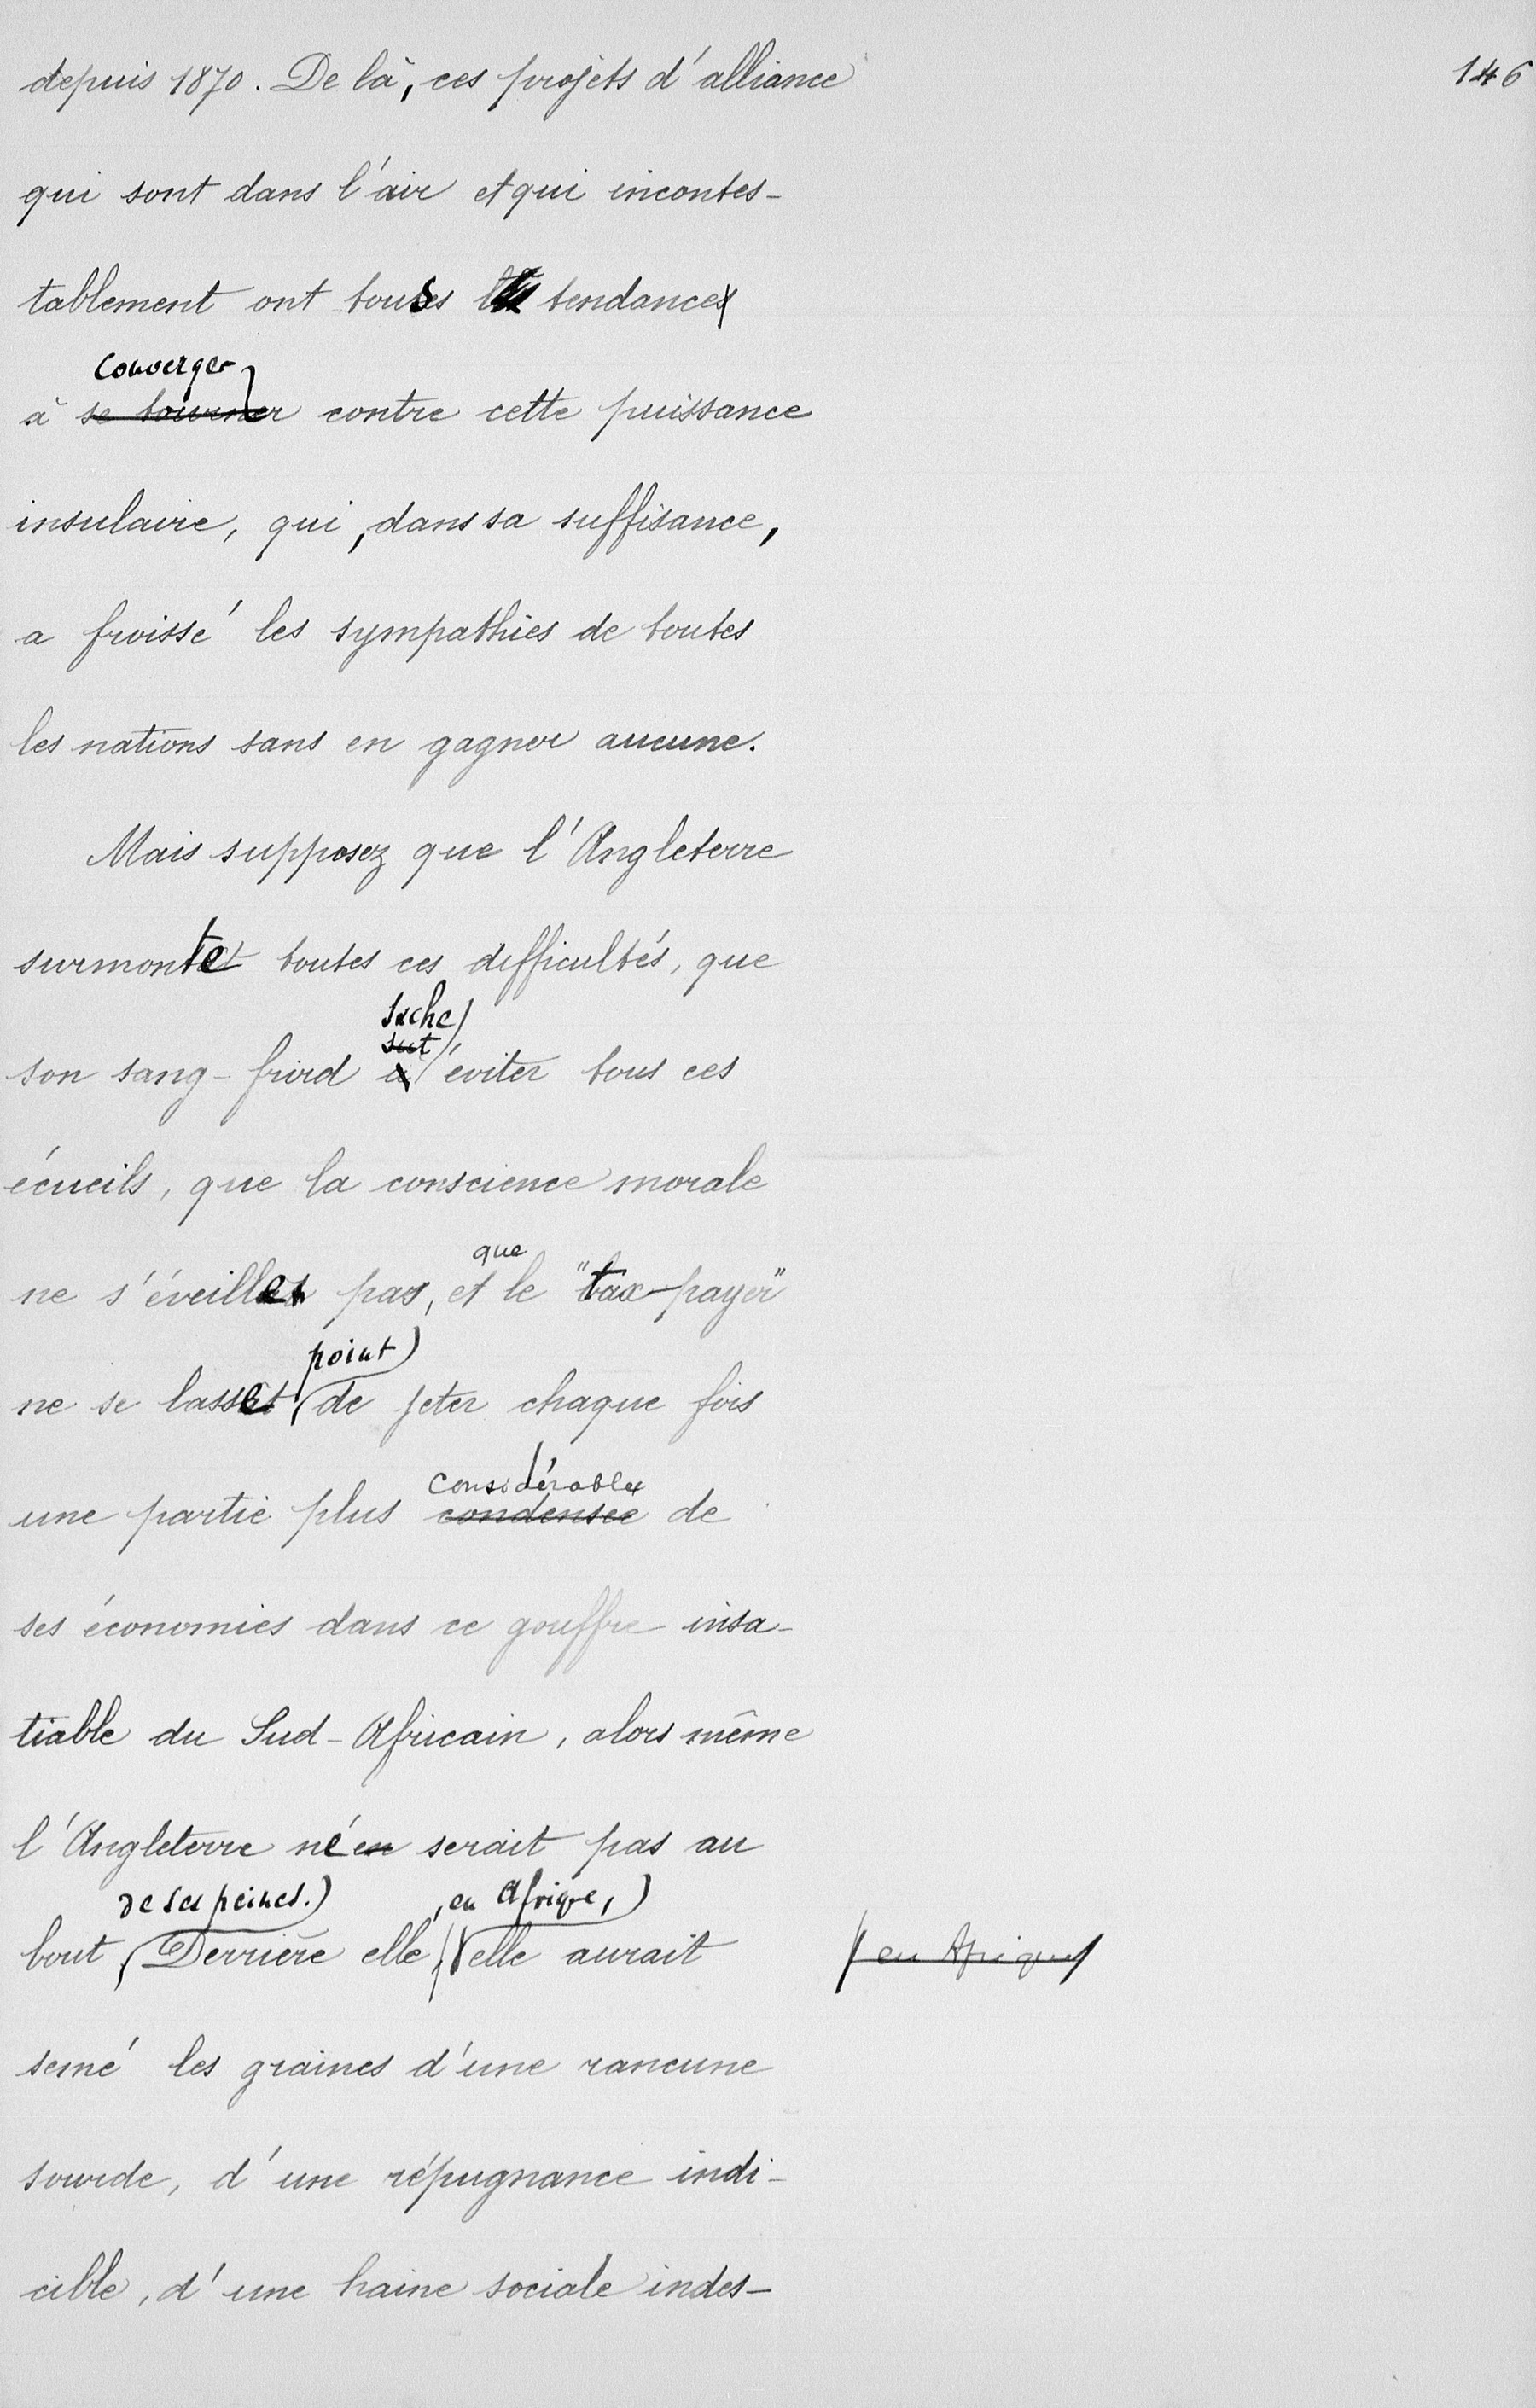 146
depuis 1870. De là, ces projets d'alliance
qui sont dans l'air et qui incontes-
tablement ont tous tendance
converger
à se tourner contre cette puissance
insulaire, qui, dans sa suffisance,
a froissé les sympathies de toutes
les nations sans en gagner aucune.
Mais supposez que l'Angleterre
surmonte toutes ces difficultés, que
sache
sut
son sang-froid à éviter tous ces
écueils, que la conscience morale
que
ne s'éveille pas, et le "tax-payer"
point
ne se lasse de jeter chaque fois
considérable
une partie plus condensée de
ses économies dans ce gouffre insa-
tiable du Sud-Africain, alors même
l'Angleterre ne en serait pas au
de ses peines. , en Afrique,
bout, Derrière elle, elle aurait
en Afrique
semé les graines d'une rancune
sourde, d'une répugnance indi-
cible, d'une haine sociale indes-